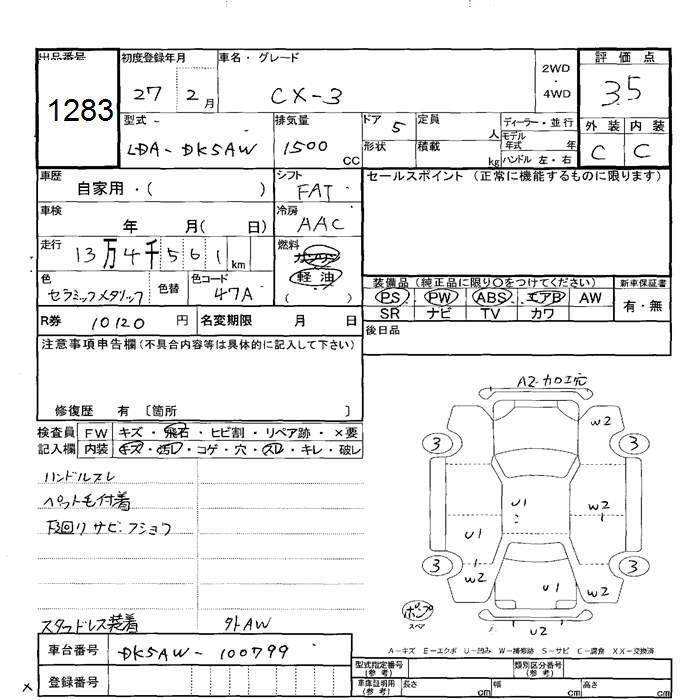 出品番号 初度登録年月 車名・グレード 2WD・4WD 評価点
1283 27 2月 CX-3 3.5
型式 排気量 ドア 5 定員 人 ディーラー・並行 外装 内装
LDA-DK5AW 1500 CC 形状 積載 kg モデル年式 年 ハンドル 左・右 C C
車歴 自家用・( ) シフト FAT セールスポイント (正常に機能するものに限ります)
車検 年 月( 日) 冷房 AAC
走行 13万4千561km 燃料 軽油 ( )
色 セラミックメタリック 色替 色コード 47A
装備品 (純正品に限り○をつけてください) 新車保証書
PS PW ABS エアB AW 有・無
SR ナビ TV カワ
R券 10120 円 名変期限 月 日 後日品
注意事項申告欄 (不具合内容等は具体的に記入して下さい)
修復歴 有 〔箇所 〕
検査員 FW キズ・飛石・ヒビ割・リペア跡・×要
記入欄 内装 キズ・汚レ・コゲ・穴・スレ・キレ・破レ
ハンドルスレ
ペット毛付着
下廻りサビ・フショク
スタッドレス装着 外AW
車台番号 DK5AW-100799
登録番号
x
A2・カロエ穴
W2
3 3
U1 W2
U1
3 3
W2 U1 W2
ポンプ
スペマ
U2
A-キズ E-エクボ U-凹み W-補修跡 S-サビ C-腐食 XX-交換済
型式指定番号 (参考) 類別区分番号 (参考)
車庫証明用 (参考) 長さ cm 幅 cm 高さ cm